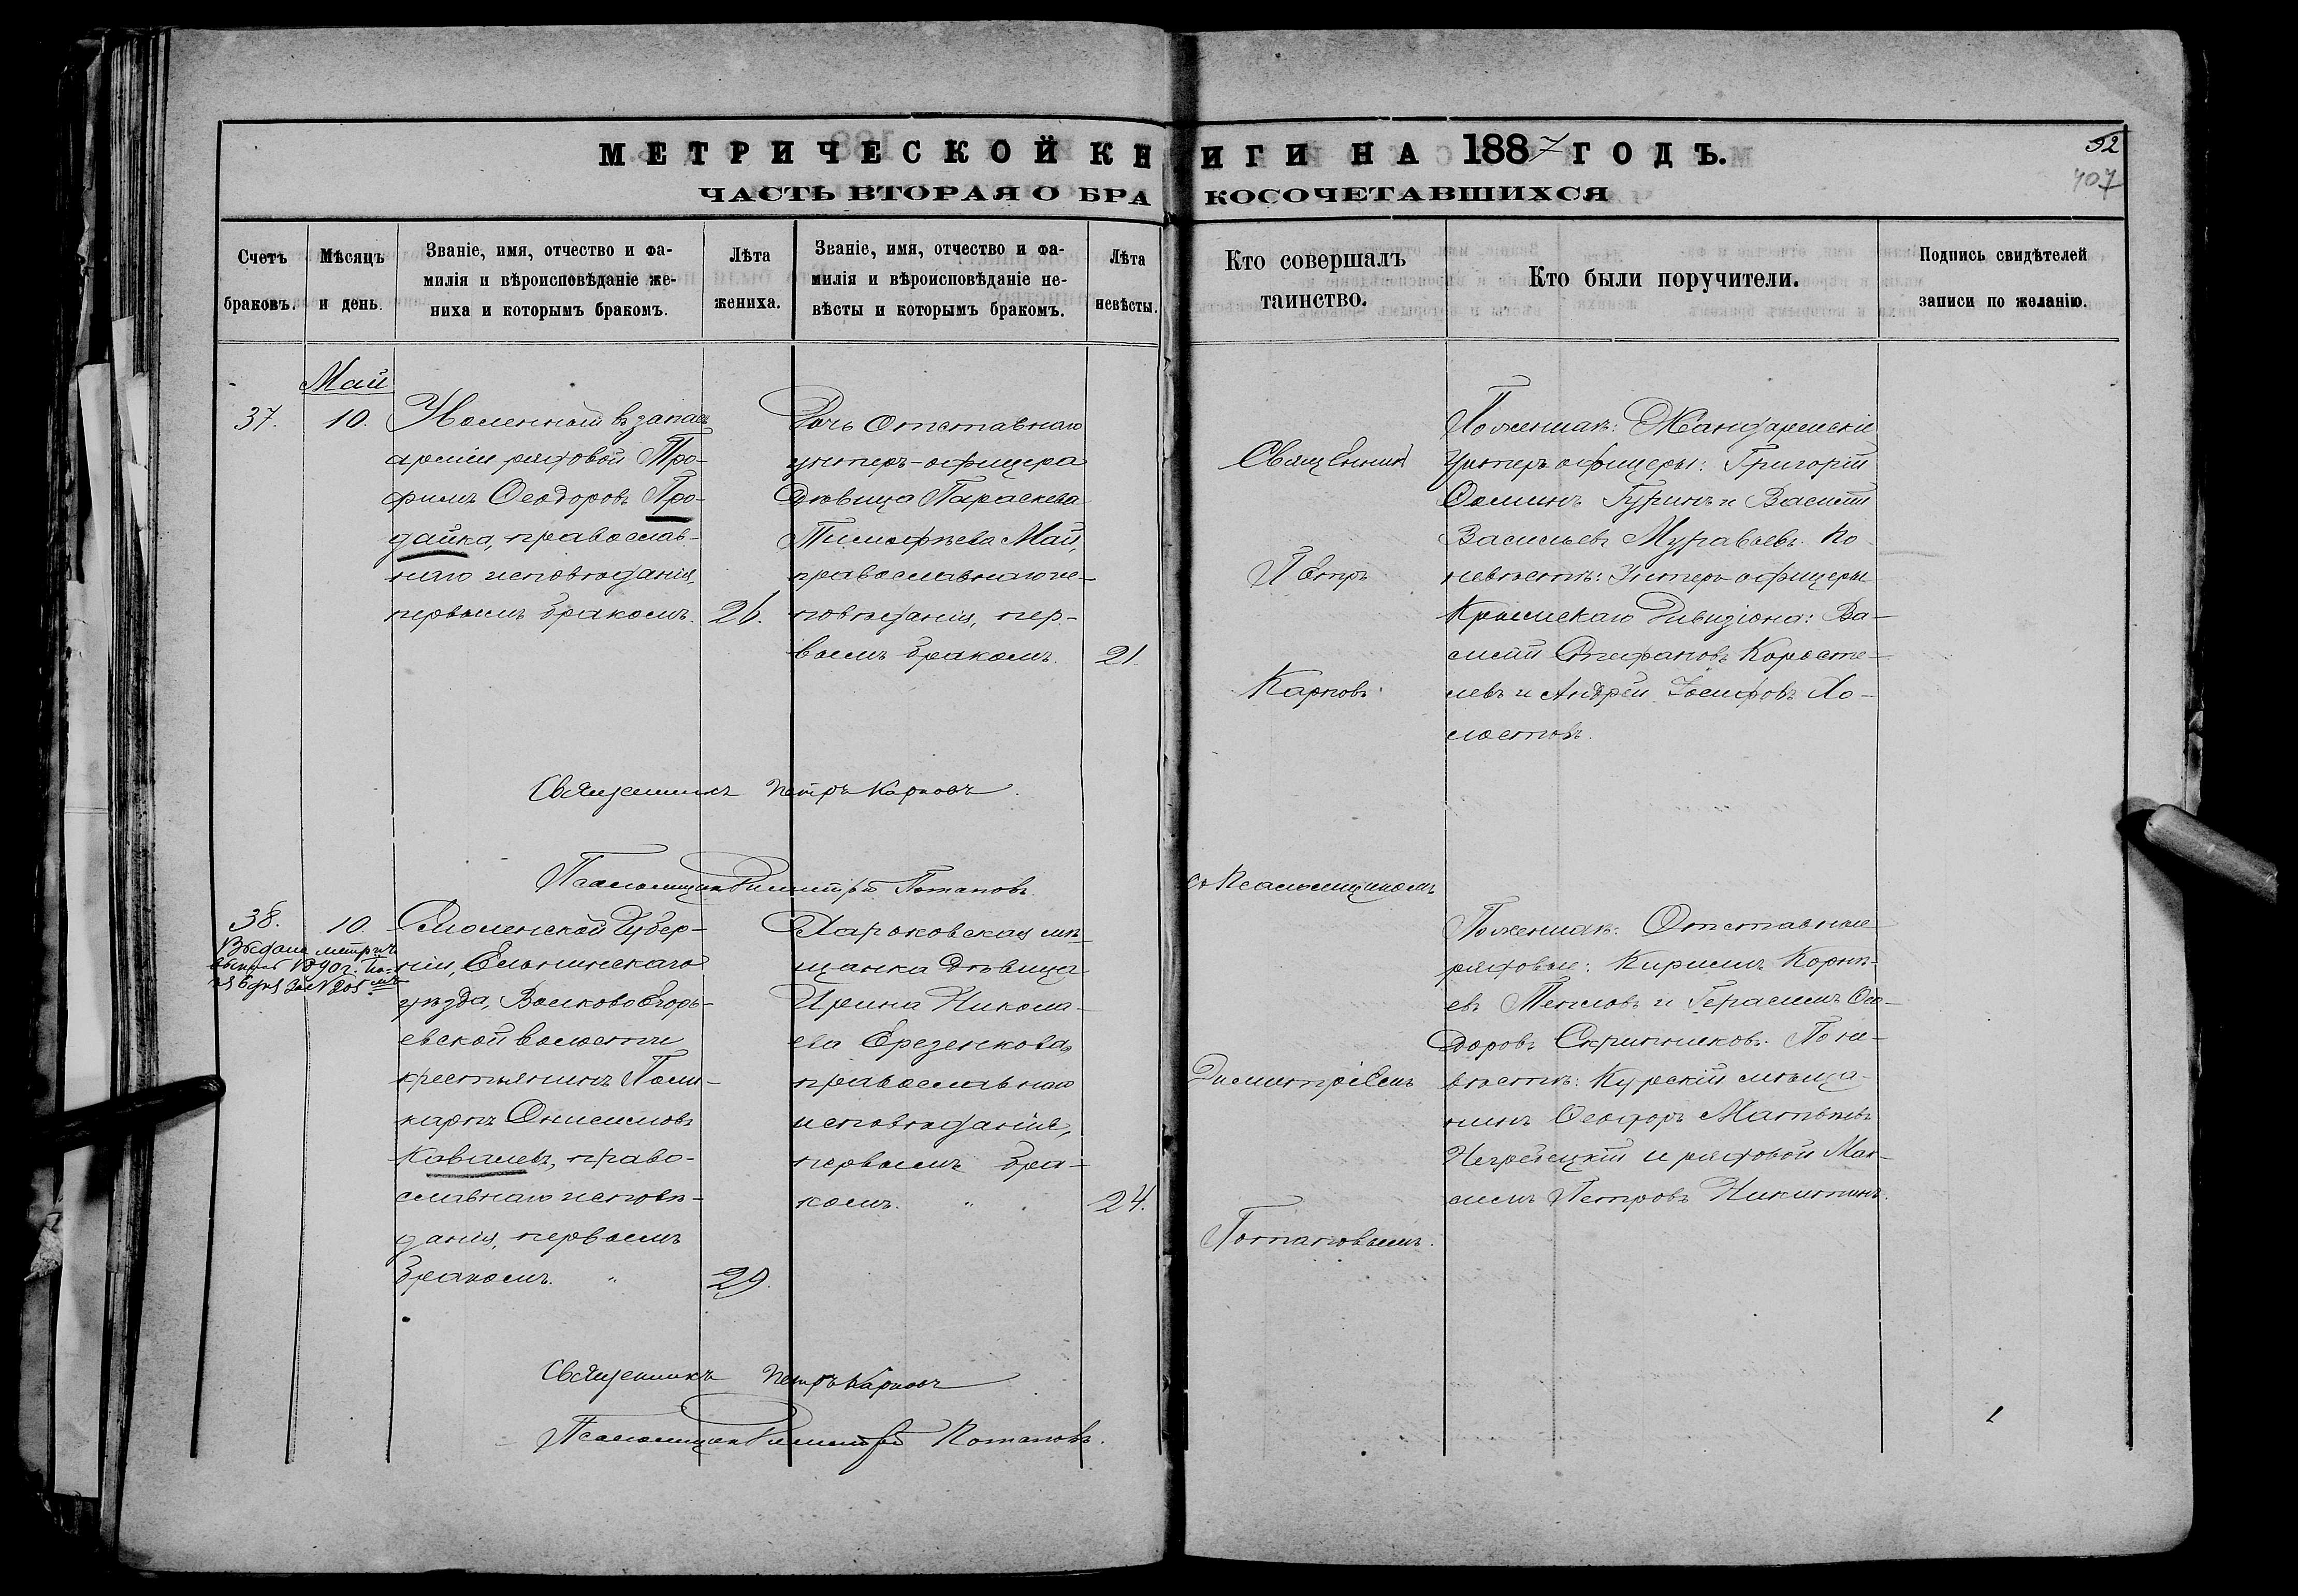 МЕТРИЧЕСКОЙ КНИГИ НА 1887 ГОДЪ.
ЧАСТЬ ВТОРАЯ О БРАКОСОЧЕТАВШИХСЯ
52
407
Счетъ браковъ.
Мѣсяцъ и день.
Званіе, имя, отчество и фа-
милія и вѣроисповѣданіе же-
ниха и которымъ бракомъ.
Лѣта
жениха.
Званіе, имя, отчество и фа-
милія и вѣроисповѣданіе не-
вѣсты и которымъ бракомъ.
Лѣта
невѣсты.
Кто совершалъ
таинство.
Кто были поручители.
Подпись свидѣтелей
записи по желанію.
Май
37.
10.
Уволенный въ запасъ
арміи рядовой Тро-
фимъ Ѳеодоровъ Про-
дайко, православ-
наго исповѣданія,
первымъ бракомъ.
26.
Дочь отставнаго
унтеръ-офицера
дѣвица Параскева
Тимофѣева Май,
православнаго ис-
повѣданія, пер-
вымъ бракомъ.
21.
Священникъ
Петръ
Карповъ
По женихѣ: Жандармскіе
унтеръ-офицеры: Григорій
Ѳоминъ Гуринъ и Василій
Васильевъ Муравьевъ. По
невѣстѣ: Унтеръ-офицеры
Крымскаго Дивизіона: Ва-
силій Стефановъ Коросте-
левъ и Андрей Іосифовъ Хо-
лостовъ.
Священникъ Петръ Карповъ
Псаломщикъ Димитрій Потаповъ.
съ Псаломщикомъ
38.
10.
Выдана метрич.
выпись 1890 г.
Смоленской Губер-
ніи, Ельнинскаго
уѣзда, Волково Егорь-
евской волости
крестьянинъ Поли-
карпъ Онисимовъ
Ковалевъ, право-
славнаго исповѣ-
данія, первымъ
бракомъ. "
29.
Харьковская мѣ-
щанка дѣвица
Ирина Никола-
ева Ерезенкова,
православнаго
исповѣданія,
первымъ бра-
комъ. "
24.
Димитріемъ
Потаповымъ.
По женихѣ: Отставные
рядовые: Кириллъ Корнѣ-
евъ Тепловъ и Герасимъ Ѳео-
доровъ Скрипниковъ. По не-
вѣстѣ: Курскій мѣща-
нинъ Ѳеодоръ Матвѣевъ
и рядовой Мак-
симъ Петровъ Никитинъ.
Священникъ Петръ Карповъ
Псаломщикъ Димитрій Потаповъ.